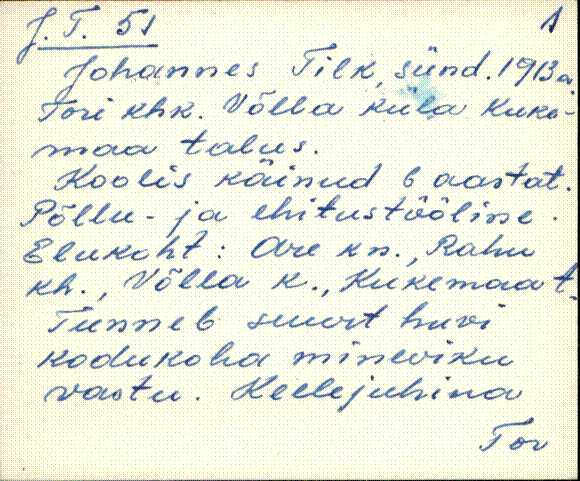 J. T. 51 1
Johannes Tilk, sünd. 1913 a.
Tori khk. Võlla küla Kuke-
maa talus.
Koolis käinud 6 aastat.
Põllu- ja ehitustööline.
Elukoht: Are kn., Rahu
kh., Võlla k., Kukemaa t.
Tunneb suurt huvi
kodukoha mineviku
vastu. Keelejuhina
Tor